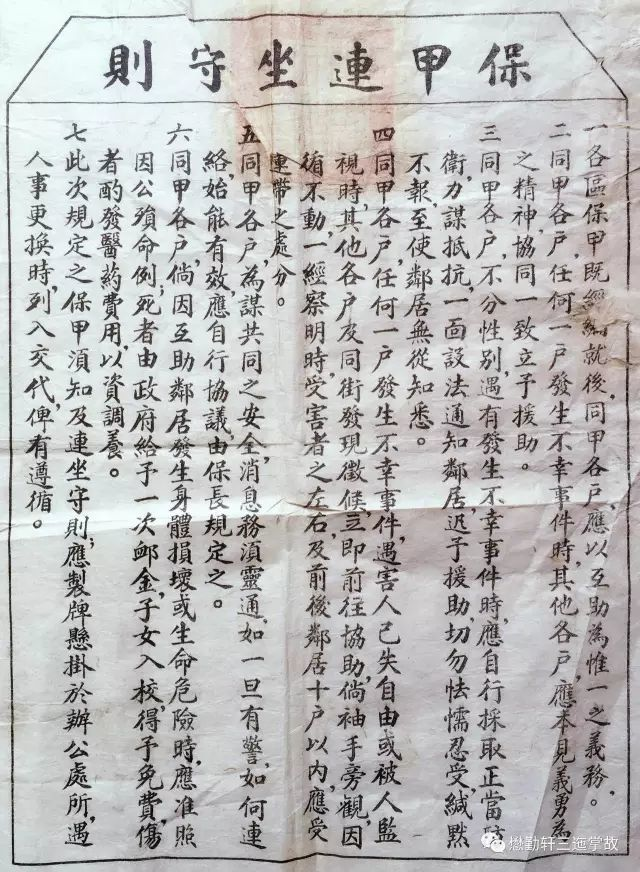 保甲連坐守則
一各區保甲既經編就後,同甲各戶,應以互助為惟一之義務。
二同甲各戶,任何一戶發生不幸事件時,其他各戶,應本見義勇為
之精神,協同一致立予援助。
三同甲各戶,不分性別,遇有發生不幸事件時,應自行採取正當防
衛,力謀抵抗,一面設法通知鄰居,迅予援助,切勿怯懦忍受,緘默
不報,至使鄰居無從知悉。
四同甲各戶,任何一戶發生不幸事件,遇害人已失自由或被人監
視時,其他各戶及同街發現徵候,立即前往協助,倘袖手旁觀,因
循不動,一經察明時,受害者之左右,及前後鄰居十戶以內,應受
連帶之處分。
五同甲各戶,為謀共同之安全,消息務須靈通,如一旦有警,如何連
絡,始能有效,應自行協議,由保長規定之。
六同甲各戶,倘因互助鄰居發生身體損壞或生命危險時,應准照
因公殞命例,死者由政府給予一次卹金,子女入校,得予免費,傷
者酌發醫葯費用,以資調養。
七此次規定之保甲須知及連坐守則;應製牌懸掛於辦公處所,遇
人事更換時,列入交代,俾有遵循。
懋勤轩三迤掌故